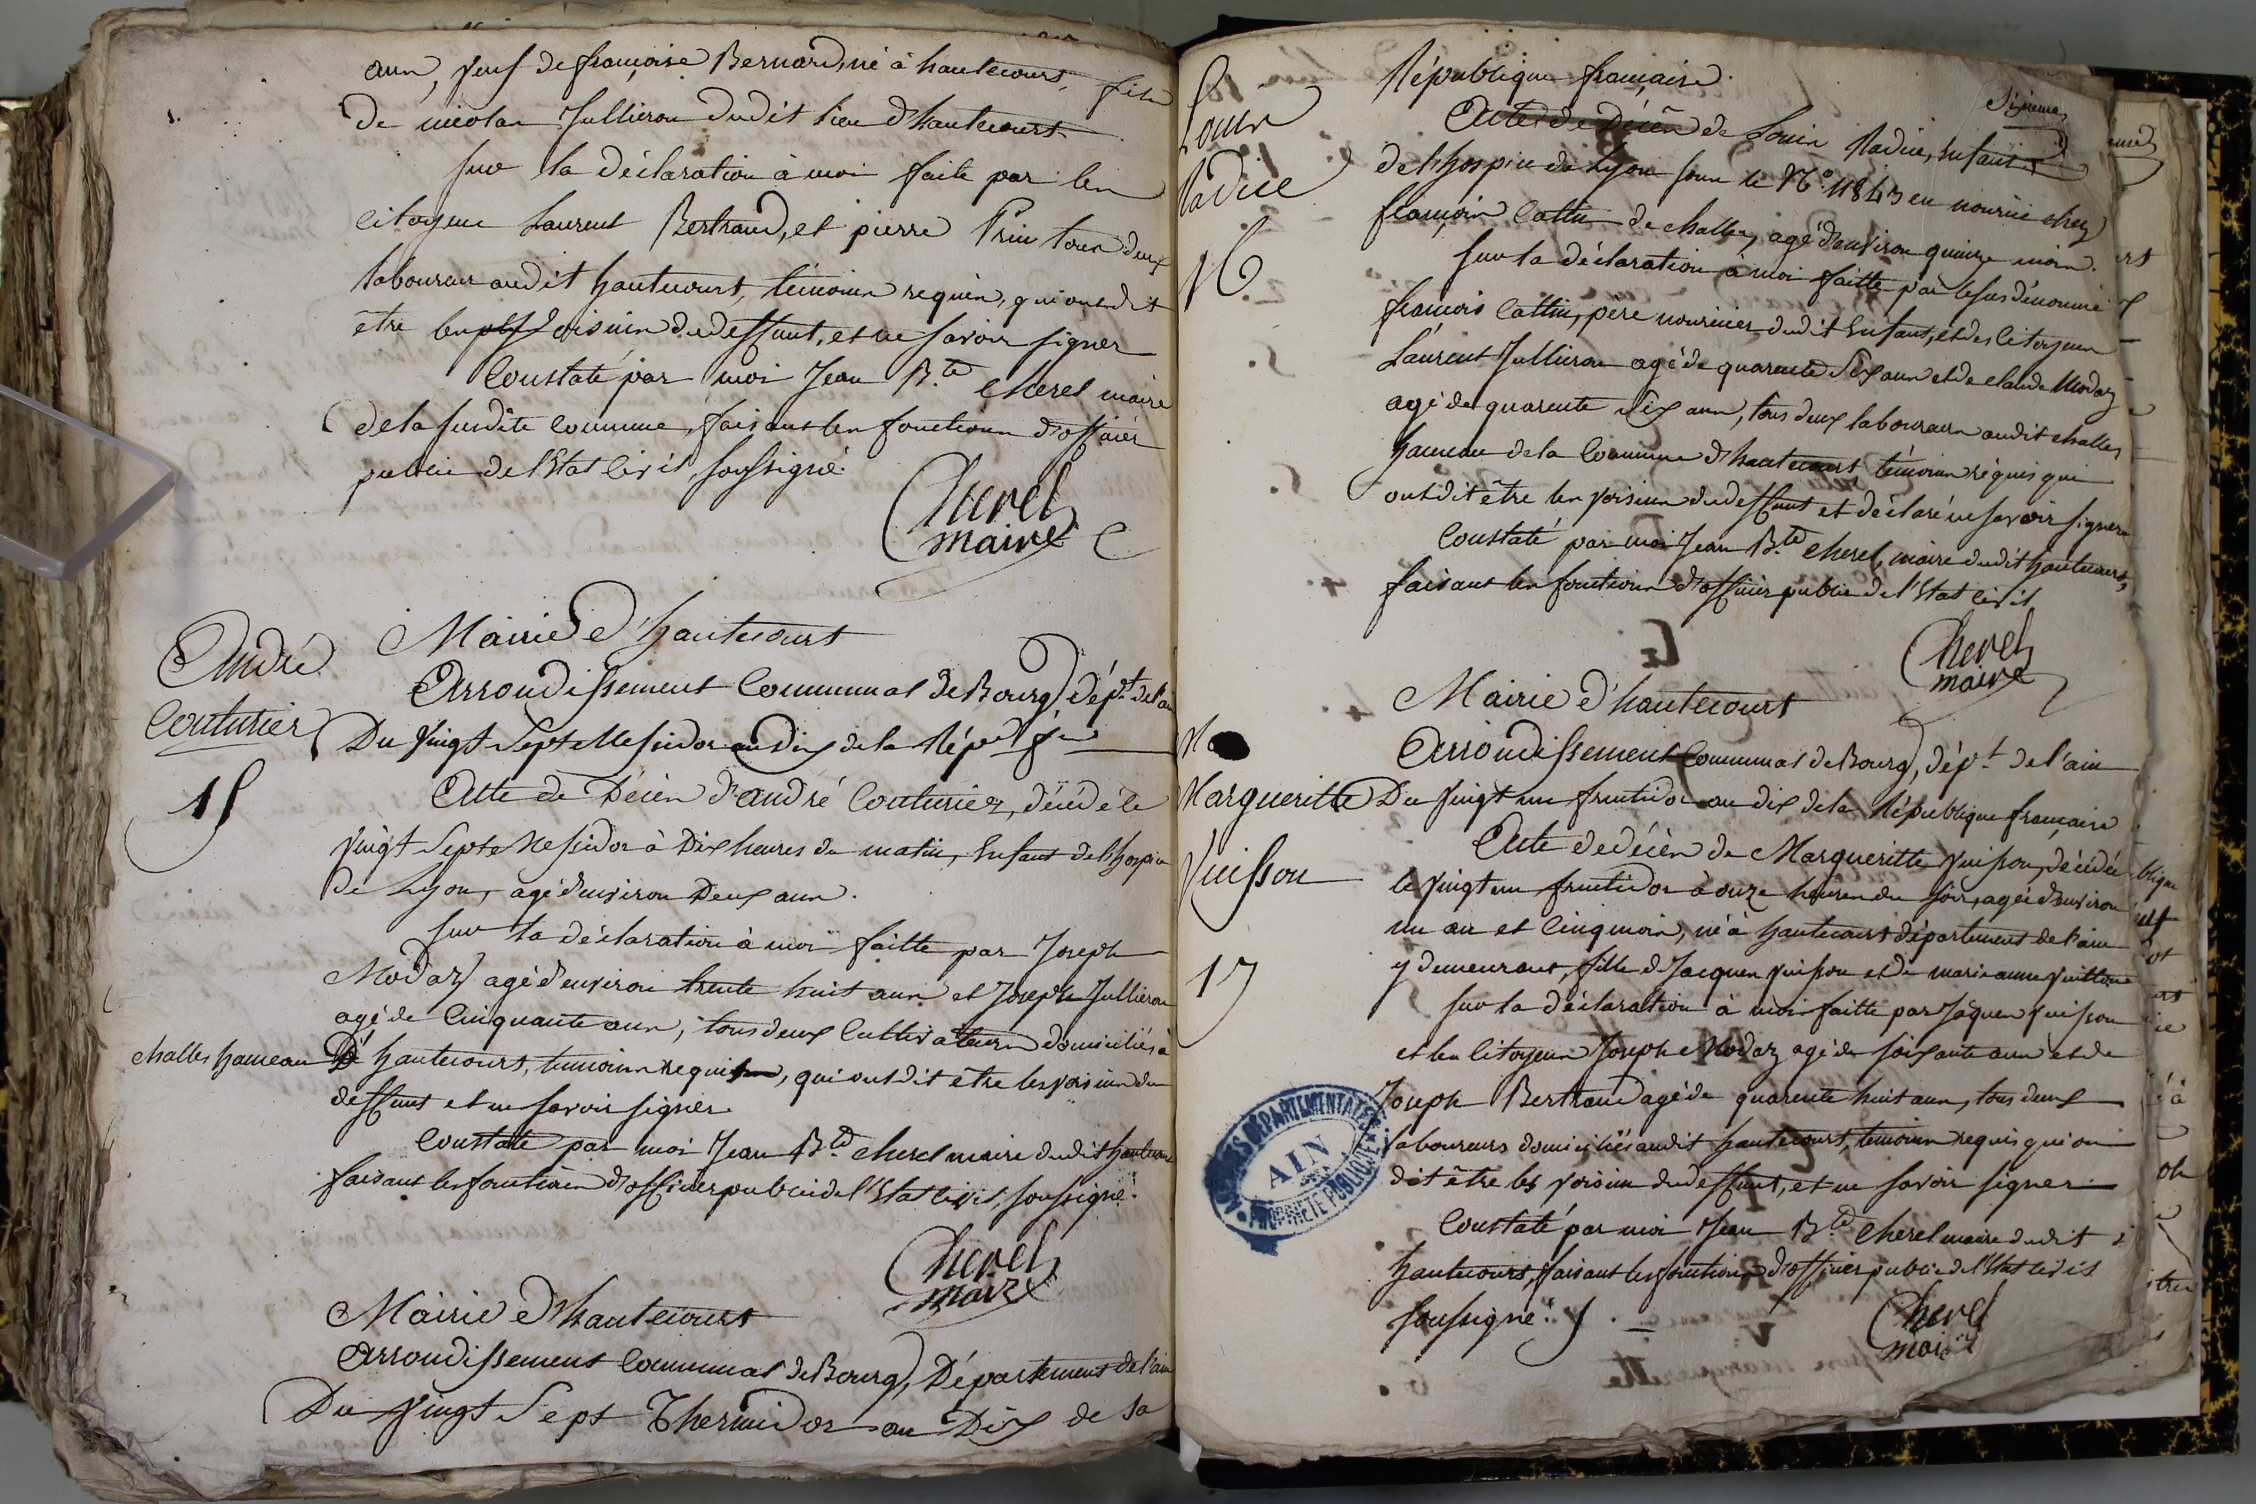 ans, veuf de françoise Bernard, né à hautecourt, fils
de nicolas Jullieron dudit lieu d'hautecourt
sur la déclaration à moi faite par les
citoyens Laurent Bertrand, et pierre Prin tous deux
laboureurs audit hautecourt, témoins requis, qui ont dit
être les voisins du deffunt, et ne savoir signer
Constaté par moi Jean B.te Cherel maire
de la susdite commune, faisant les fonctions d'officier
public de l'Etat Civil, soussigné.
Cherel
maire
André
Couturier
15
Mairie d'hautecourt
Arrondissement Communal de Bourg dép.t de l'ain
Du vingt Sept Messidor an dix de la Rép. f.
Acte de Décès d'andré Couturier, décédé le
vingt Sept Messidor à Dix heures du matin, Enfant de l'hospice
de Lyon, agé d'environ Deux ans.
sur la déclaration à moi faitte par Joseph
Modaz agé d'environ trente huit ans et Joseph Jullieron
agé de Cinquante ans, tous deux Cultivateurs domiciliés à
challes hameau D' hautecourt, temoins requis, qui ont dit etre les voisins du
deffunt et ne savoir signer.
Constaté par moi Jean B.te Cherel maire dudit hautecourt
faisant les fonctions d'officier public de l'Etat Civil, soussigné.
Cherel
maire
Mairie d'hautecourt
Arrondissement Communal de Bourg, Département de l'ain
Du vingt Sept Thermidor an Dix de la
République française.
Louis
Radice
16
Acte de Décès de Louis Radice, Enfant
de l'hospice de Lyon sous le N.o 11843 en nourrice chez
françois Cattin de challes, agé d'environ quinze mois.
sur la déclaration à moi faitte par le susdénommé
françois Cattin, père nouricier dudit Enfant, et des Citoyens
Laurent Jullieron agé de quarente Six ans et de claude Modaz
agé de quarente Six ans, tous deux laboureurs audit challes
hameau de la Commune d'hautecourt témoins réquis qui
ont dit être les voisins du deffunt et déclaré ne savoir signer
Constaté par moi Jean B.te Cherel, maire dudit hautecourt,
faisant les fonctions d'officier public de l'Etat Civil
Cherel
maire
Mairie d'hautecourt
Arrondissement Communal de Bourg, dép.t de l'ain
Margueritte
Vuisson
17
Du vingt un fructidor an dix de la République française
Acte de décès de Margueritte Vuisson, décédée
le vingt un fructidor à onze heures du soir, agée d'environ
un an et Cinq mois, né à hautecourt département de l'ain
y demeurant, fille de Jacques Vuisson et de marie anne
sur la déclaration à moi faitte par Jaques Vuisson
et les Citoyens Joseph Modaz agé de soixante ans et de
Joseph Bertrand agé de quarente huit ans, tous deux
laboureurs domiciliés audit hautecourt, temoins requis qui on
dit être les voisins du deffunt, et ne savoir signer.
Constaté par moi Jean B.te Cherel maire dudit
hautecourt, faisant les fonctions d'officier public de l'Etat Civil
soussigné.
Cherel
maire
ARCHIVES DEPARTEMENTALES
AIN
PROPRIETE PUBLIQUE